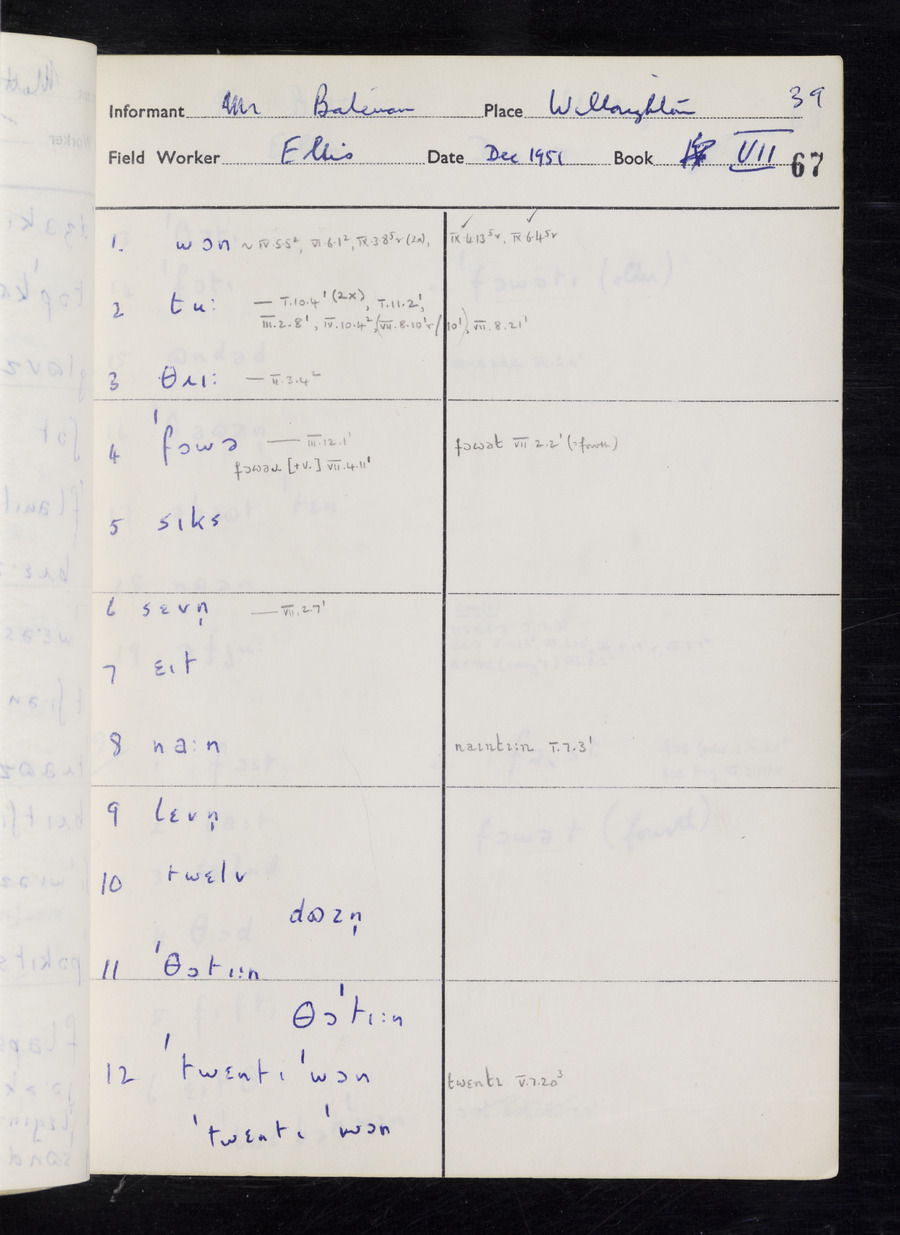 39
Informant Mr Bateman Place Willoughton
Field Worker Ellis Date Dec 1951 Book VII 67
1. wɔn ~ IV.5.5², VI.6.1², IX.3.8⁵r (2x), IX.4.13⁵r, IX.6.4⁵r
2 tu: — I.10.4¹ (2x), I.11.2¹,
III.2.8¹, IV.10.4², (VII.8.10¹r/10¹), VII.8.21¹
3 θɹı: — II.3.4²
4 ˈfɔwə — III.12.1¹ fɔwət VII 2.2¹ (=fourth)
fɔwəɹ [+v.] VII.4.11¹
5 sıks
6 sɛvn̩ — VII.2.7¹
7 ɛıt
8 na:n naıntı:n I.7.3¹
9 lɛvn̩
10 twɛlv
dɷzn̩
11 ˈθɔtı:n
θɔˈtı:n
12 ˈtwɛntı ˈwɔn twɛntı V.7.20³
ˈtwɛntı ˈwɔn